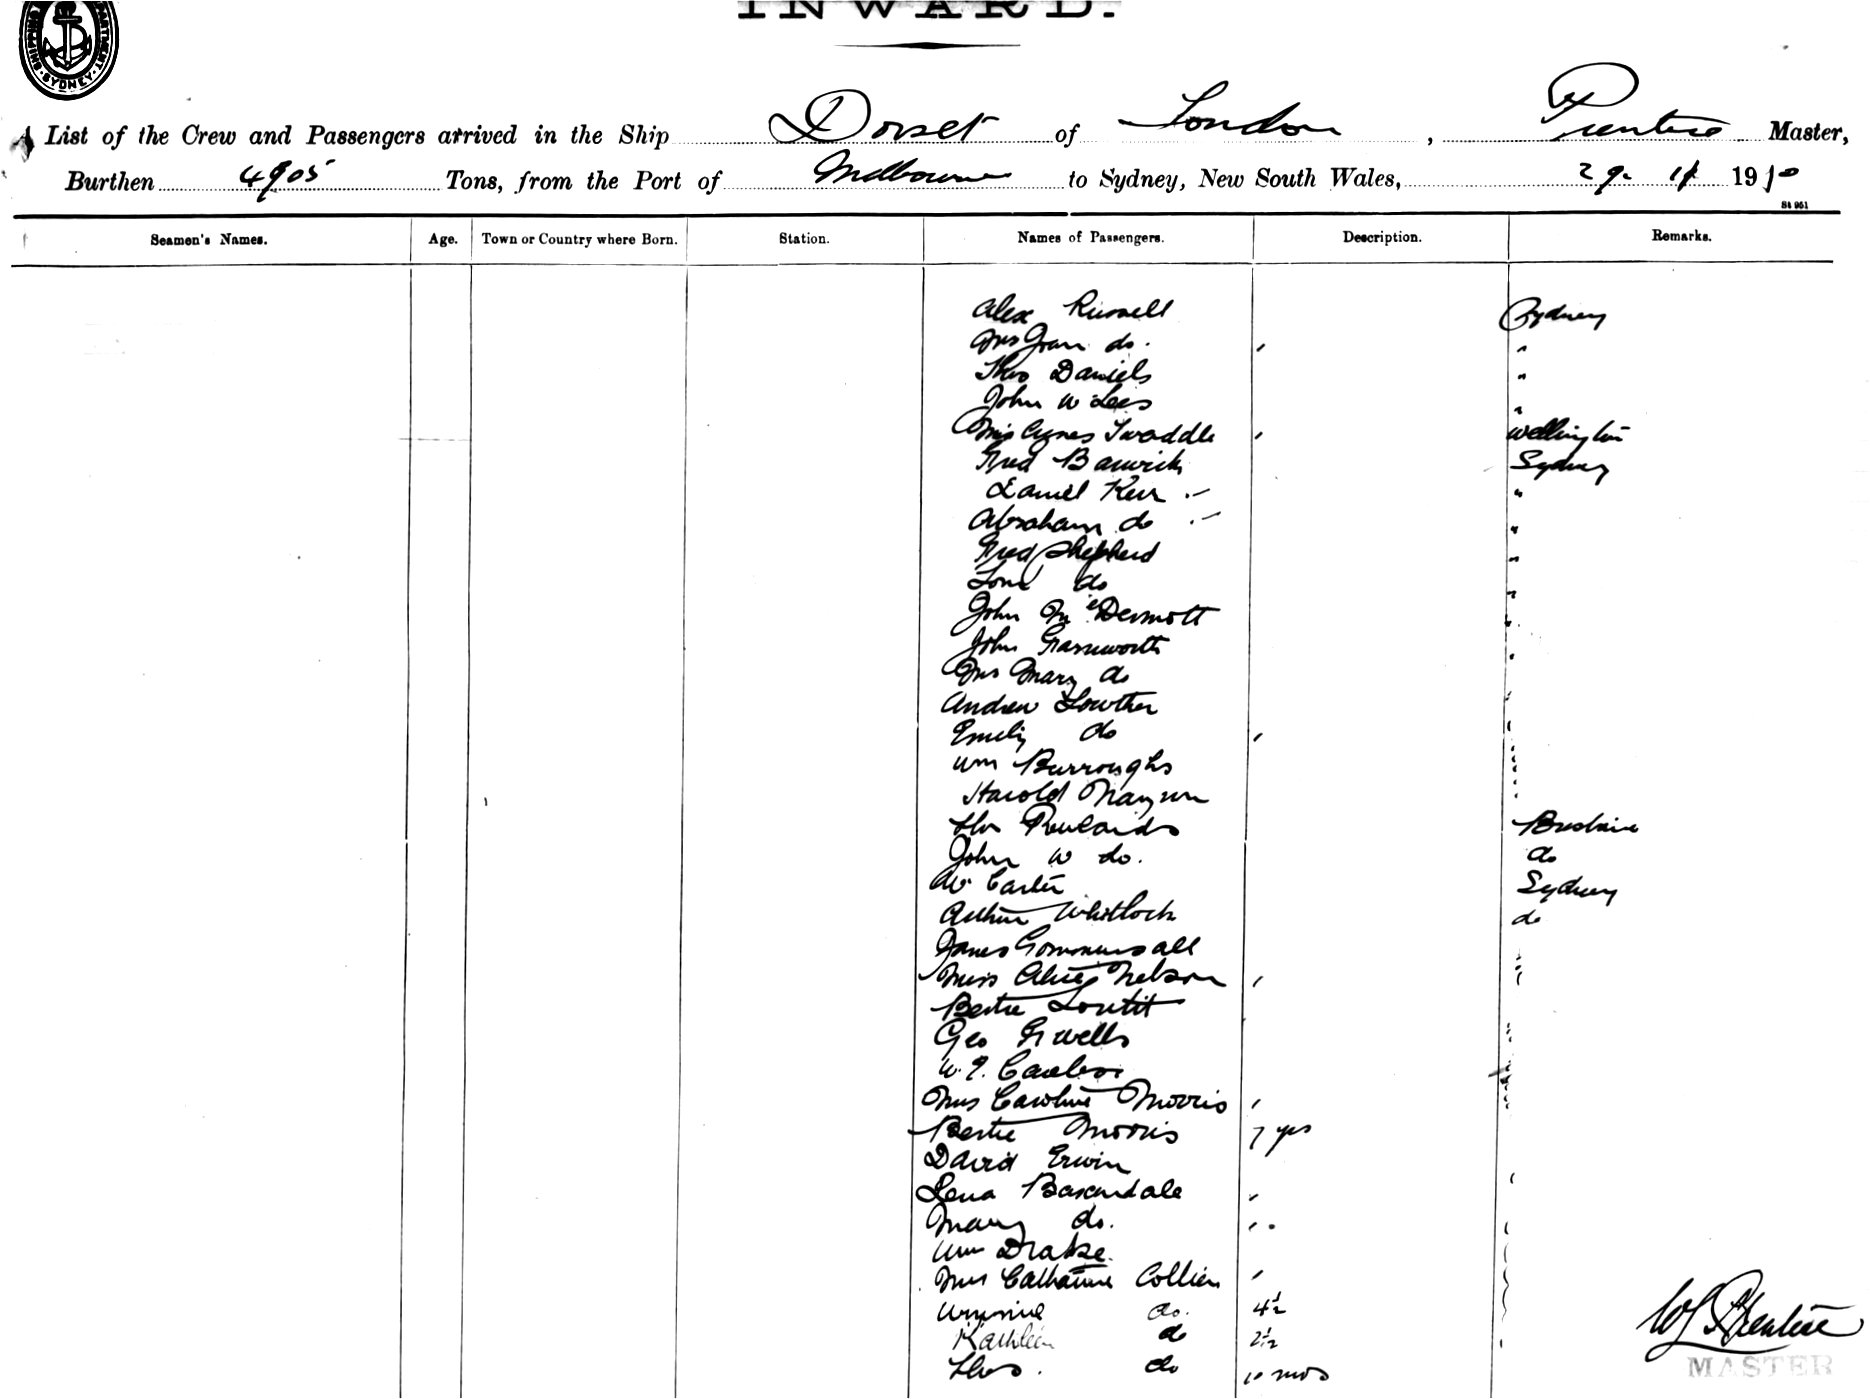 INWARD.
SHIPPING DEPARTMENT. SYDNEY.
List of the Crew and Passengers arrived in the Ship Dorset of London, Prentice Master,
Burthen 4905 Tons, from the Port of Melbourne to Sydney, New South Wales, 29. 11 1910
St 951
Seamen's Names. Age. Town or Country where Born. Station. Names of Passengers. Description. Remarks.
Alex Russell Sydney
Mrs do. "
Thos Daniels "
John W Lees "
Miss Agnes Twaddle Wellington
Fred Barwick Sydney
Daniel Kerr "
Abraham do "
Fred Shepherd "
do "
John McDermott "
John "
Mrs Mary do
Andrew Lowther
Emily do
Wm Burroughs
Harold
Thos Brisbane
John W do. do
W Carter Sydney
Arthur Whitlock do
James Gommersall
Miss Alice Nelson
Bertie Loutit
Geo Wells
W.
Mrs Caroline Morris
Bertie Morris 7 yrs
David Erwin
Lena
Mary do.
Wm Drake
Mrs Catharine Collier
Winnie do. 4½
Kathleen do 2½
Thos. do 10 mos
Prentice
MASTER